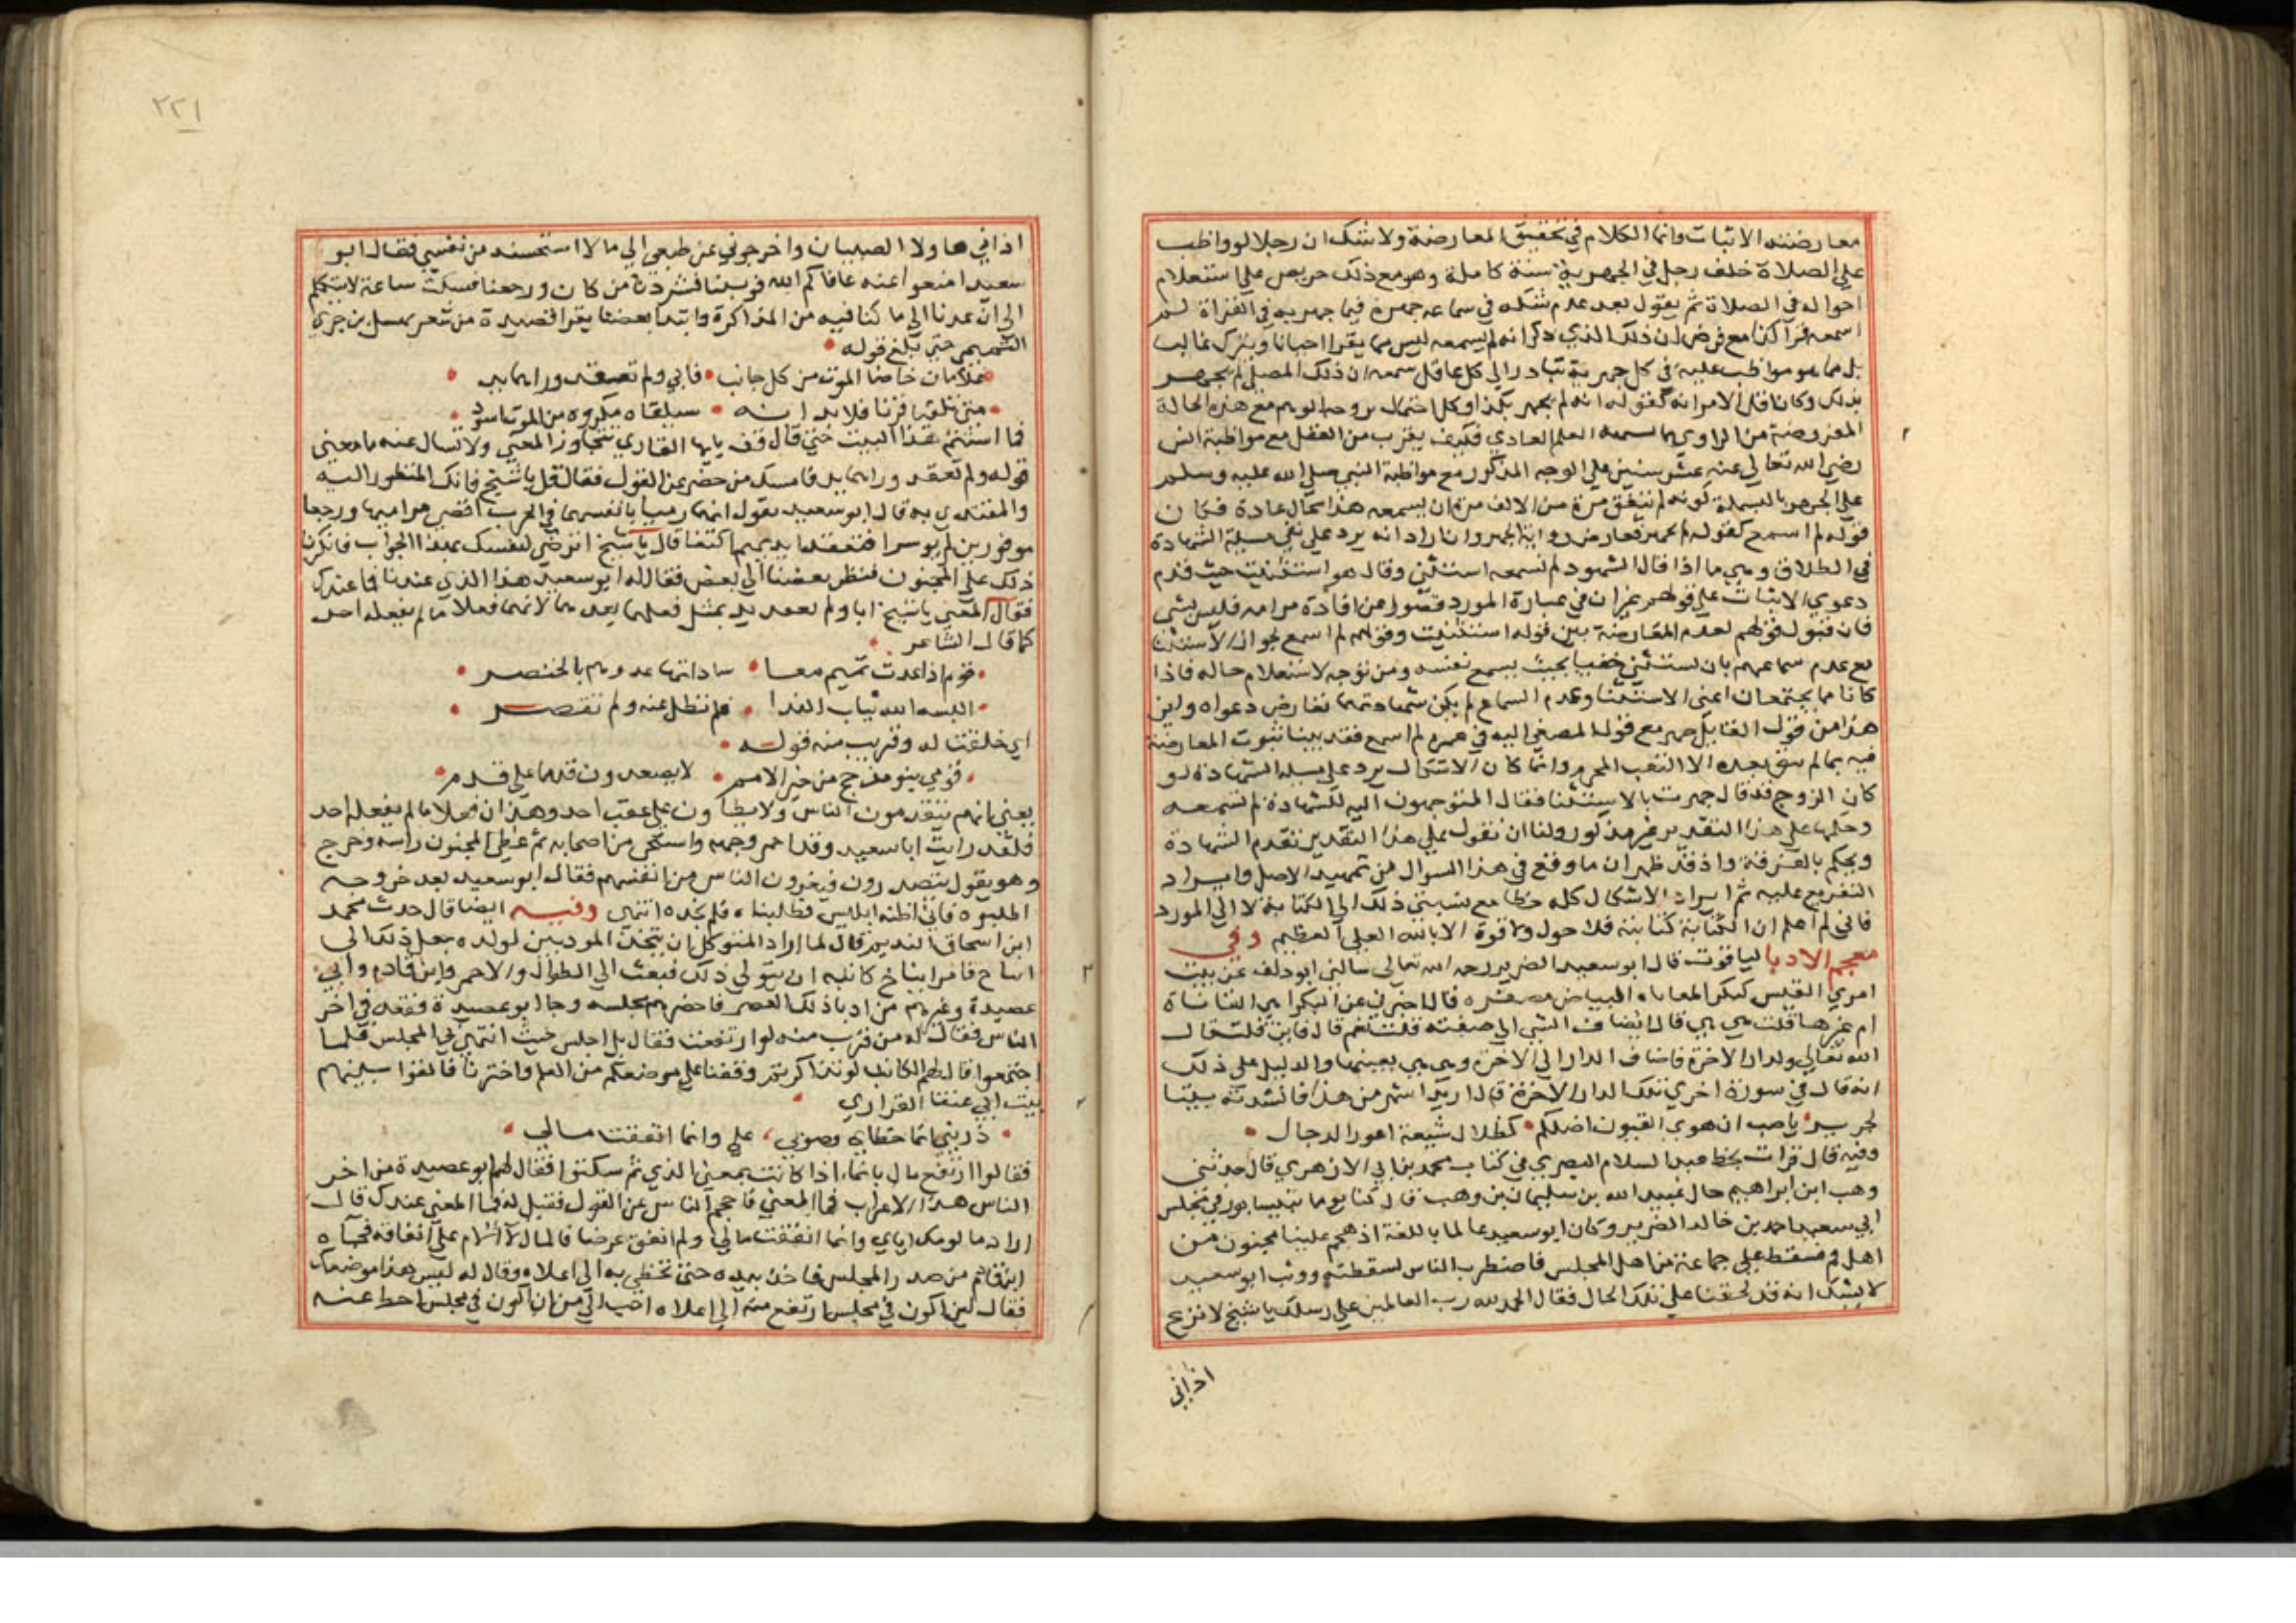 معارضته الاثبات وانما الكلام في تحقيق المعارضة ولا شك ان رجلا لو واظب
على الصلاة خلف رجل في الجهرية سنة كاملة وهو مع ذلك حريص على استعلام
احواله في الصلاة ثم يقول بعد عدم شكه في سماعه جهره فيما جهر به في القراة لم
اسمعه قرا كذا مع فرض ان ذلك الذي ذكر انه لم يسمعه ليس مما يقرا احيانا ويترك غالبا
بل مما هو مواظب عليه في كل جهرية تبادر الى كل عاقل سمعه ان ذلك المصلي لم يجهر
بذلك وكان قل الامر انه كقوله انه لم يجهر بكذا وكل احتمال مع هذه الحالة
المعزوضة من الراوي العلم العادي فكيف يقرب من العقل مع مواظبة انس
رضي الله تعالى عنه عشر سنين على الوجه المذكور مع مواظبة النبي صلى الله عليه وسلم
على الجهر بالبسملة كونه لم يتفق مرة من الالف مرة ان يسمعه هذا محال عادة فكان
قوله لم اسمع كقوله لم يجهر فعارض رواية الجهر وان اراد انه يرد على نفي مسيلة الشهادة
في الطلاق وهي ما اذا قال الشهود لم نسمعه استثنى وقال هو استثنيت حيث قدم
دعوي الاثبات على قولهم غير ان في عبارة المورد قصورا عن افادة مرامه فليس بشي
فان قبول قولهم لعدم المعارضة بين قوله استثنيت وقولهم لم اسمع لجواز الاستثنا
مع عدم سماعهم بان يستثني خفيا بحيث يسمع نفسه ومن توجه لاستعلام حاله فاذا
كانا مما يجتمعان اعني الاستثنا وعدم السماع لم يكن شهادتهما تعارض دعواه واين
هذا من قول القايل جهر مع قول المصغي اليه في عمره لم اسمع فقد بينا ثبوت المعارضة
فيه بما لم يبق بعده الا التعب المحرم وانما كان الاشكال يرد على مسيلة الشهادة لو
كان الزوج قد قال جهرت بالاستثنا فقال المتوجهون اليه للشهادة لم نسمعه
وحكمها على هذا التقدير غير مذكور ولنا ان نقول على هذا التقدير تقدم الشهادة
ويحكم بالفرقة واذ قد ظهر ان ما وقع في هذا السوال من تمهيد الاصل وايراد
التفريع عليه ثم ايراد الاشكال كله خطا مع نسبتي ذلك الى الكتابة لا الى المورد
فاني لم اعلم ان الكتابة كتابته فلا حول ولا قوة الا بالله العلي العظيم وفي
معجم الادبا لياقوت قال ابو سعيد الضرير رحمه الله تعالى سالني ابو دلف عن بيت
امري القيس كبكر المقاناه البياض بصفره قال اخبرني عن البكر اهي المقاناة
ام غيرها قلت هي هي قال ايضاف الشي الى صفته قلت نعم قال فاين قلت قال
الله تعالى ولدار الاخرة فاضاف الدار الى الاخرة وهي هي بعينها والدليل على ذلك
انه قال في سورة اخري تلك الدار الاخرة قال اريد اشهر من هذا فانشدته بيتا
لجرير يا ضب ان هوي القيون اضلكم كظلال شيعة اعور الدجال
وفيه قال قرات بخط عبد السلام البصري في كتاب محمد بن ابي الازهري قال حدثني
وهب ابن ابراهيم خال عبيد الله بن سليمان بن وهب قال كنا يوما بنيسابور في مجلس
ابي سعيد احمد بن خالد الضرير وكان ابو سعيد عالما باللغة اذ هجم علينا مجنون من
اهل قم فسقط على جماعة من اهل المجلس فاضطرب الناس لسقطته ووثب ابو سعيد
لا يشك انه قد لحقنا على تلك الحال فقال الحمد لله رب العالمين على رسلك يا شيخ لا تزع
اذاني
٢٢١
اذاني هاولا الصبيان واخرجوني عن طبعي الى ما لا استحسنه من نفسي فقال ابو
سعيد امنعوا عنه عافاكم الله فوثبنا فشردنا من كان ورجعنا فسكت ساعة لا يتكلم
الى ان عدنا الى ما كنا فيه من المذاكرة وابتدا بعضنا يقرا قصيدة من شعر نهشل بن جري
التميمي حتى بلغ قوله
غلامان خاضا الموت من كل جانب فابا ولم تعقد ورايما يد
متى يلقيا قرنا فلا بد انه سيلقاه مكروه من الموت اسود
فما استتم هذا البيت حتى قال قف يايها القاري تتجاوز المعني ولا تسال عنه ما معني
قوله ولم تعقد ورايما يد فامسك من حضر عن القول فقال قل يا شيخ فانك المنظور اليه
والمقتدي به قال ابو سعيد يقول انهما رميا بانفسهما في الحرب اقصي مراميها ورجعا
موفورين لم يوسرا فتعقد ايديهما كتفا قال يا شيخ اترضي لنفسك بهذا الجواب فانكرنا
ذلك على المجنون فنظر بعضنا الى بعض فقال له ابو سعيد هذا الذي عندنا فما عندك
فقال المعني يا شيخ ابا ولم تعقد يد بمثل فعلهما بعدهما لانهما فعلا ما لم يفعله احد
كما قال الشاعر
قرم اذا عدت تميم معا ساداتها عدوه بالخنصر
البسه الله ثياب الندا فلم تطل عنه ولم تقصر
اي خلقت له وقريب منه قوله
قومي بنو مذحج من خير الامم لا يصعدون قدما على قدم
يعني انهم يتقدمون الناس ولا يطاون على عقب احد وهذان فعلا ما لم يفعله احد
فلقد رايت ابا سعيد وقد احمر وجهه واستحى من اصحابه ثم غطى المجنون راسه وخرج
وهو يقول يتصدرون فيغرون الناس من انفسهم فقال ابو سعيد بعد خروجه
اطلبوه فاني اظنه ابليس فطلبناه فلم نجده انتهى وفيه ايضا قال حدث محمد
ابن اسحاق النديم قال لما اراد المتوكل ان يتخذ المودبين لولده جعل ذلك الى
ايتاخ فامر ايتاخ كاتبه ان يتولى ذلك فبعث الى الطوال والاحمر وابن قادم وابي
عصيدة وغيرهم من ادبا ذلك العصر فاحضرهم مجلسه وجا ابو عصيدة فقعد في اخر
الناس فقال له من قرب منه لو ارتفعت فقال بل اجلس حيث انتهى بي المجلس فلما
اجتمعوا قال لهم الكاتب لو تذاكرتم وقفنا على موضعكم من العلم واخترنا فالقوا بينهم
بيت ابي عنقا الفزاري
ذريني انما خطاي وصوبي علي وانما انفقت مالي
فقالوا ارتفع مال بانما اذا كانت بمعنى الذي ثم سكتوا فقال لهم ابو عصيدة من اخر
الناس هذا الاعراب فما المعني فاحجم الناس عن القول فقيل له فما المعني عندك قال
اراد ما لومك اياي وانما انفقت مالي ولم انفق عرضا فالمال لا الام على انفاقه فجاه
ابن قادم من صدر المجلس فاخذ بيده حتى تخطى به الى اعلاه وقال له ليس هذا موضعك
فقال لين اكون في مجلس ارتفع منه الى اعلاه احب الي من ان اكون في مجلس احط عنه